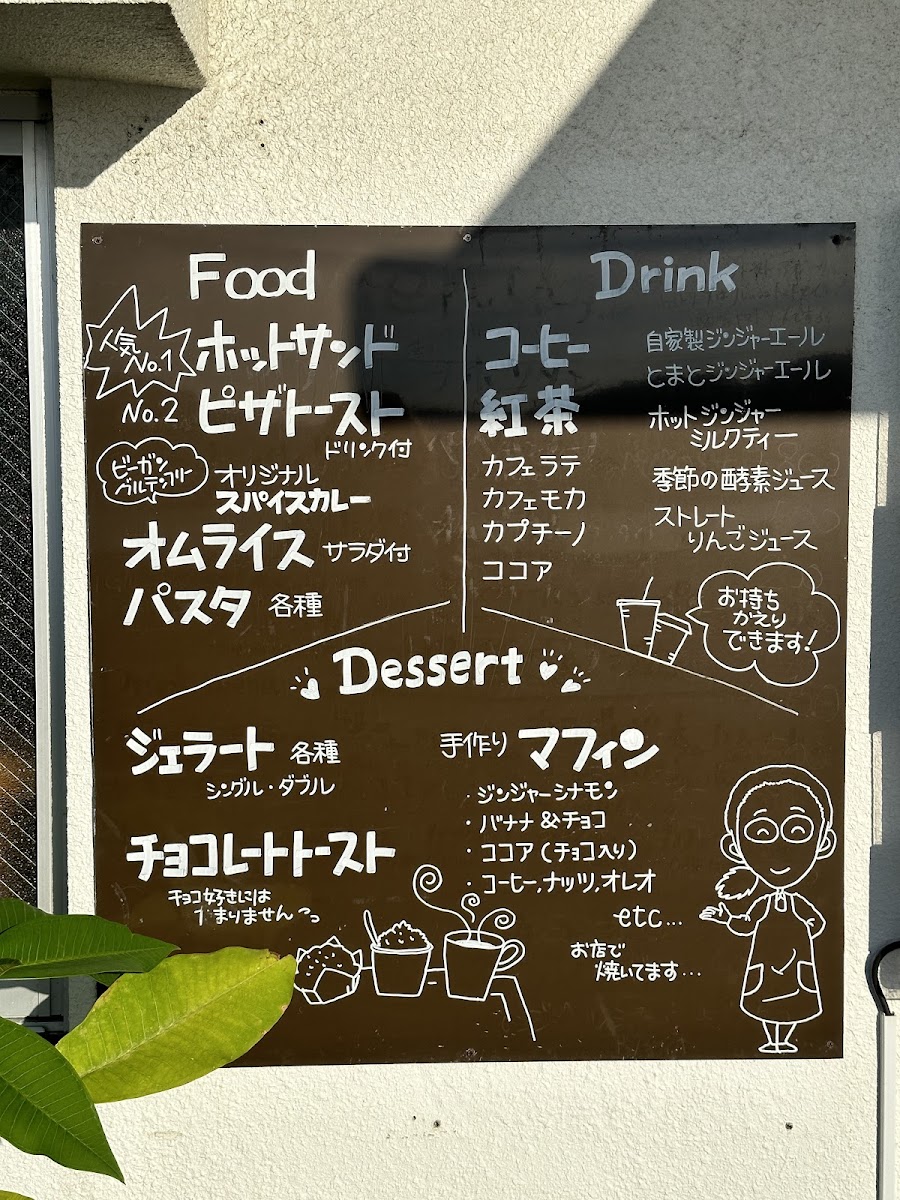 Food
人気No.1
ホットサンド
No.2 ピザトースト
ドリンク付
ビーガン
グルテンフリー
オリジナル
スパイスカレー
オムライス サラダ付
パスタ 各種
Drink
コーヒー
紅茶
カフェラテ
カフェモカ
カプチーノ
ココア
自家製ジンジャーエール
とまとジンジャーエール
ホットジンジャー
ミルクティー
季節の酵素ジュース
ストレート
りんごジュース
お持ち
かえり
できます!
Dessert
ジェラート 各種
シングル・ダブル
チョコレートトースト
チョコ好きには
たまりません
手作り マフィン
・ジンジャーシナモン
・バナナ&チョコ
・ココア(チョコ入り)
・コーヒー,ナッツ,オレオ
etc...
お店で
焼いてます...